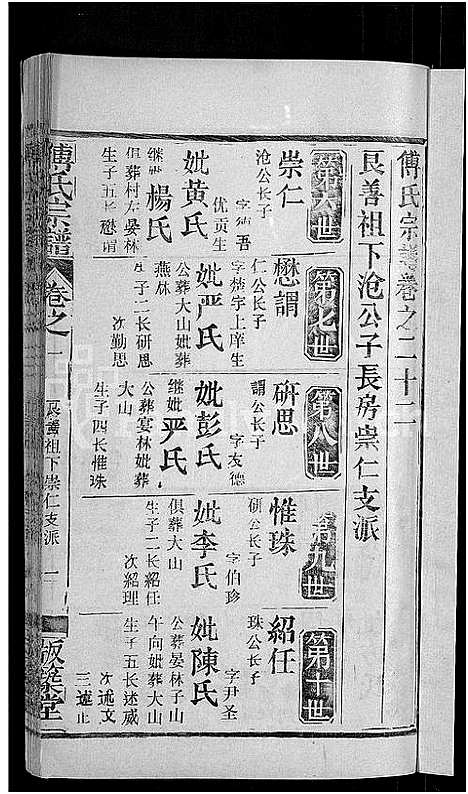 傅氏宗譜卷之二十二
良善祖下沧公子長房崇仁支派
第六世
崇仁
沧公长子
字德吾
优贡生
妣黃氏
继妣楊氏
俱葬村左晏林
生子五长懋谓
第七世
懋謂
仁公长子
字楚宇上庠生
妣严氏
公葬大山妣葬
燕林
生子二长研思
次勤思
第八世
研思
謂公长子
字友德
妣彭氏
继妣严氏
公葬宴林妣葬
大山
生子四长惟珠
第九世
惟珠
研公长子
字伯珍
妣李氏
俱葬大山
生子二长紹任
次紹理
第十世
紹任
珠公长子
字尹圣
妣陳氏
公葬晏林子山
午向妣葬大山
生子五长述威
次述文
三述正
傅氏宗譜
卷之
良善祖下崇仁支派
一
版築堂